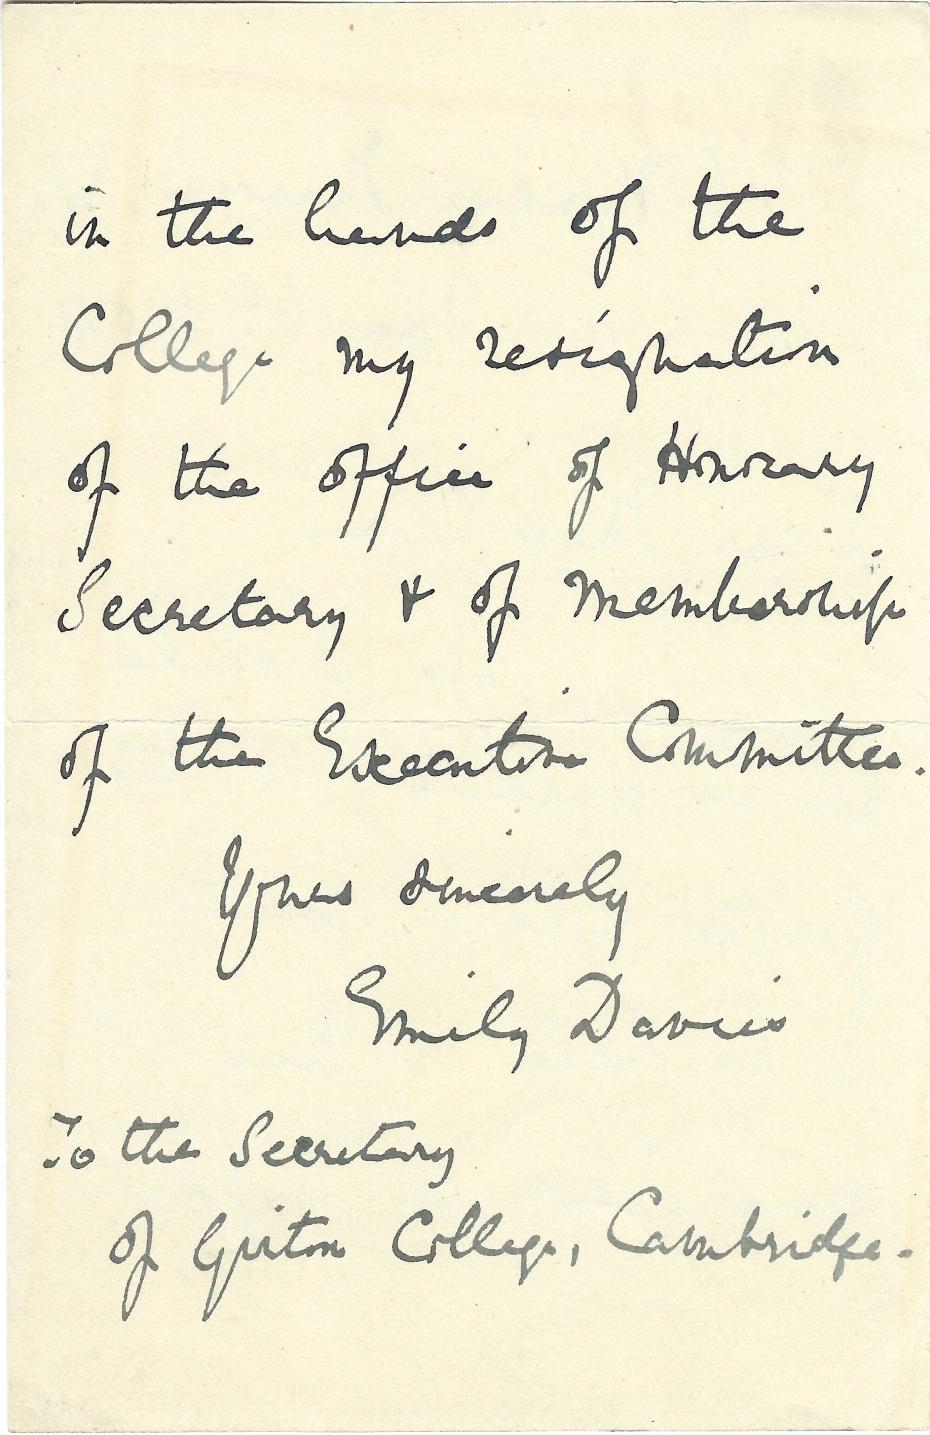 in the hands of the
College my resignation
of the office of Honorary
Secretary & of Membership
of the Executive Committee.
Yours sincerely
Emily Davies
To the Secretary
of Girton College, Cambridge.